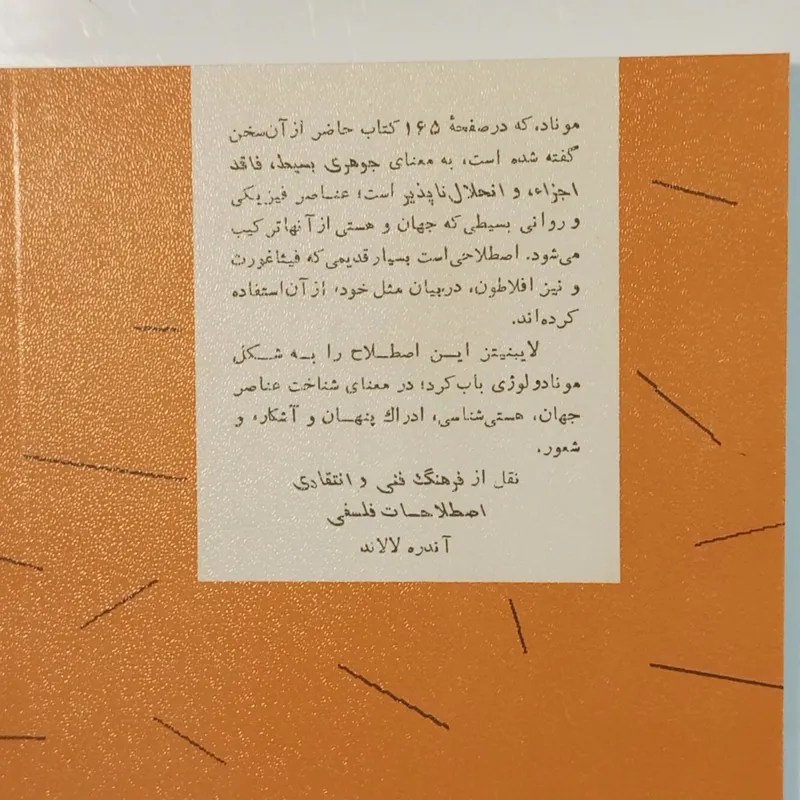 موناد، که در صفحهٔ ۱۶۵ کتاب حاضر از آن سخن
گفته شده است، به معنای جوهری بسیط، فاقد
اجزاء، و انحلال‌ناپذیر است؛ عناصر فیزیکی
و روانی بسیطی که جهان و هستی از آنها ترکیب
می‌شود. اصطلاحی است بسیار قدیمی که فیثاغورث
و نیز افلاطون، در بیان مثل خود، از آن استفاده
کرده‌اند.
لایبنیتز این اصطلاح را به شکل
مونادولوژی باب کرد؛ در معنای شناخت عناصر
جهان، هستی‌شناسی، ادراك پنهان و آشکار، و
شعور.
نقل از فرهنگ فنی و انتقادی
اصطلاحات فلسفی
آندره لالاند